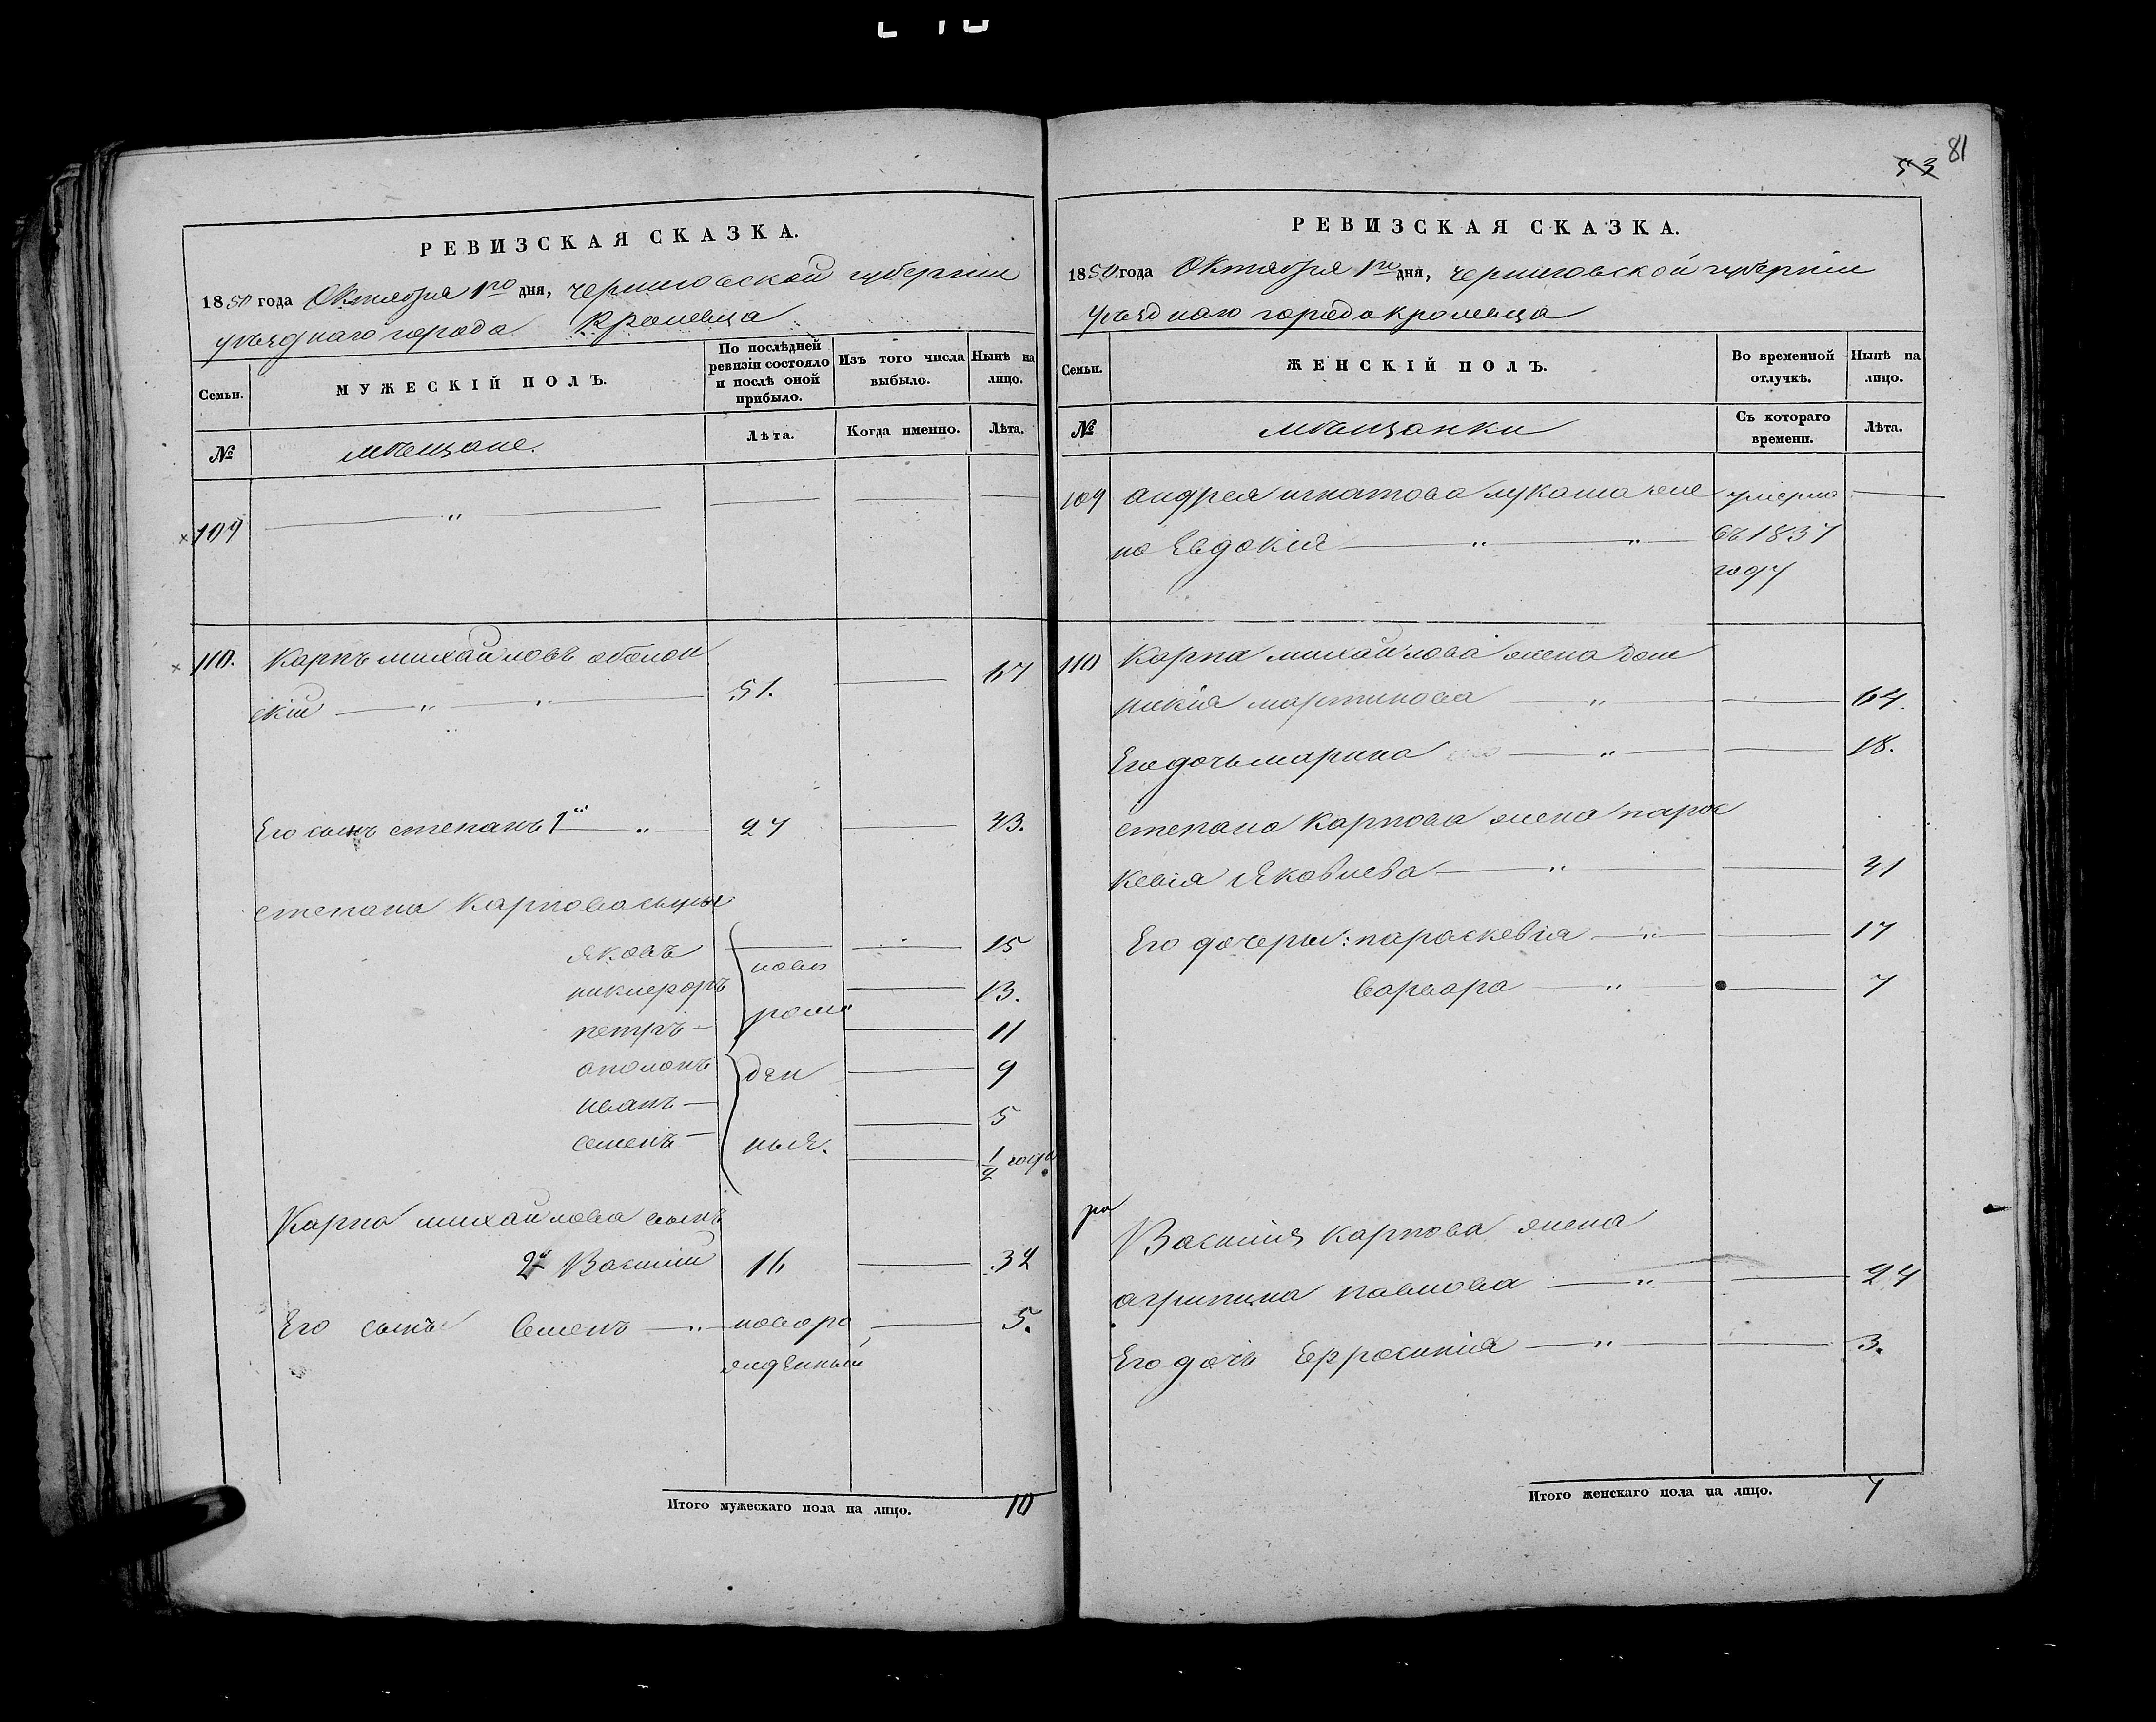 53 81
РЕВИЗСКАЯ СКАЗКА.
1850 года Октября 1го дня, черниговской губерніи
уѣзднаго города Кролевца
Семьи.
МУЖЕСКІЙ ПОЛЪ.
По послѣдней ревизіи состояло и послѣ оной прибыло.
Изъ того числа выбыло.
Нынѣ на лицо.
№
мѣщане.
Лѣта.
Когда именно.
Лѣта.
109 — „ —
110. Карпъ михайловъ оболон
скій — „ — „ — 51. — 67
Его сынъ степанъ 1й — „ — 27 — 43.
степана Карпова сыны
яковъ — — 15
ново
никифоръ — 13.
рож
петръ — — 11
аполонъ ден — 9
иванъ — — 5
семенъ — ные. — 1/2 года
Карпа михайлова сынъ
2й Василій 16 — 32
Его сынъ Семенъ — „ — новоро — 5.
жденный
Итого мужескаго пола на лицо. 10
РЕВИЗСКАЯ СКАЗКА.
1850 года Октября 1го дня, черниговской губерніи
уѣзднаго города кролевца
Семьи.
ЖЕНСКІЙ ПОЛЪ.
Во временной отлучкѣ.
Нынѣ на лицо.
№
мѣщанки
Съ котораго времени.
Лѣта.
109 андрея игнатова лукаша же умерла —
на Евдокія — „ — „ — въ 1837
году
110 Карпа михайлова жена дом
никія мартинова — „ — — 64.
Его дочь марина — „ — — 18.
степана Карпова жена парас
кевія Яковлева — „ — — 41
Его дочери: параскевія — „ — — 17
варвара — „ — — 7
Василія Карпова жена
агрипина павлова — „ — — 24
Его дочь Ефросинія — „ — — 3.
Итого женскаго пола на лицо. 7